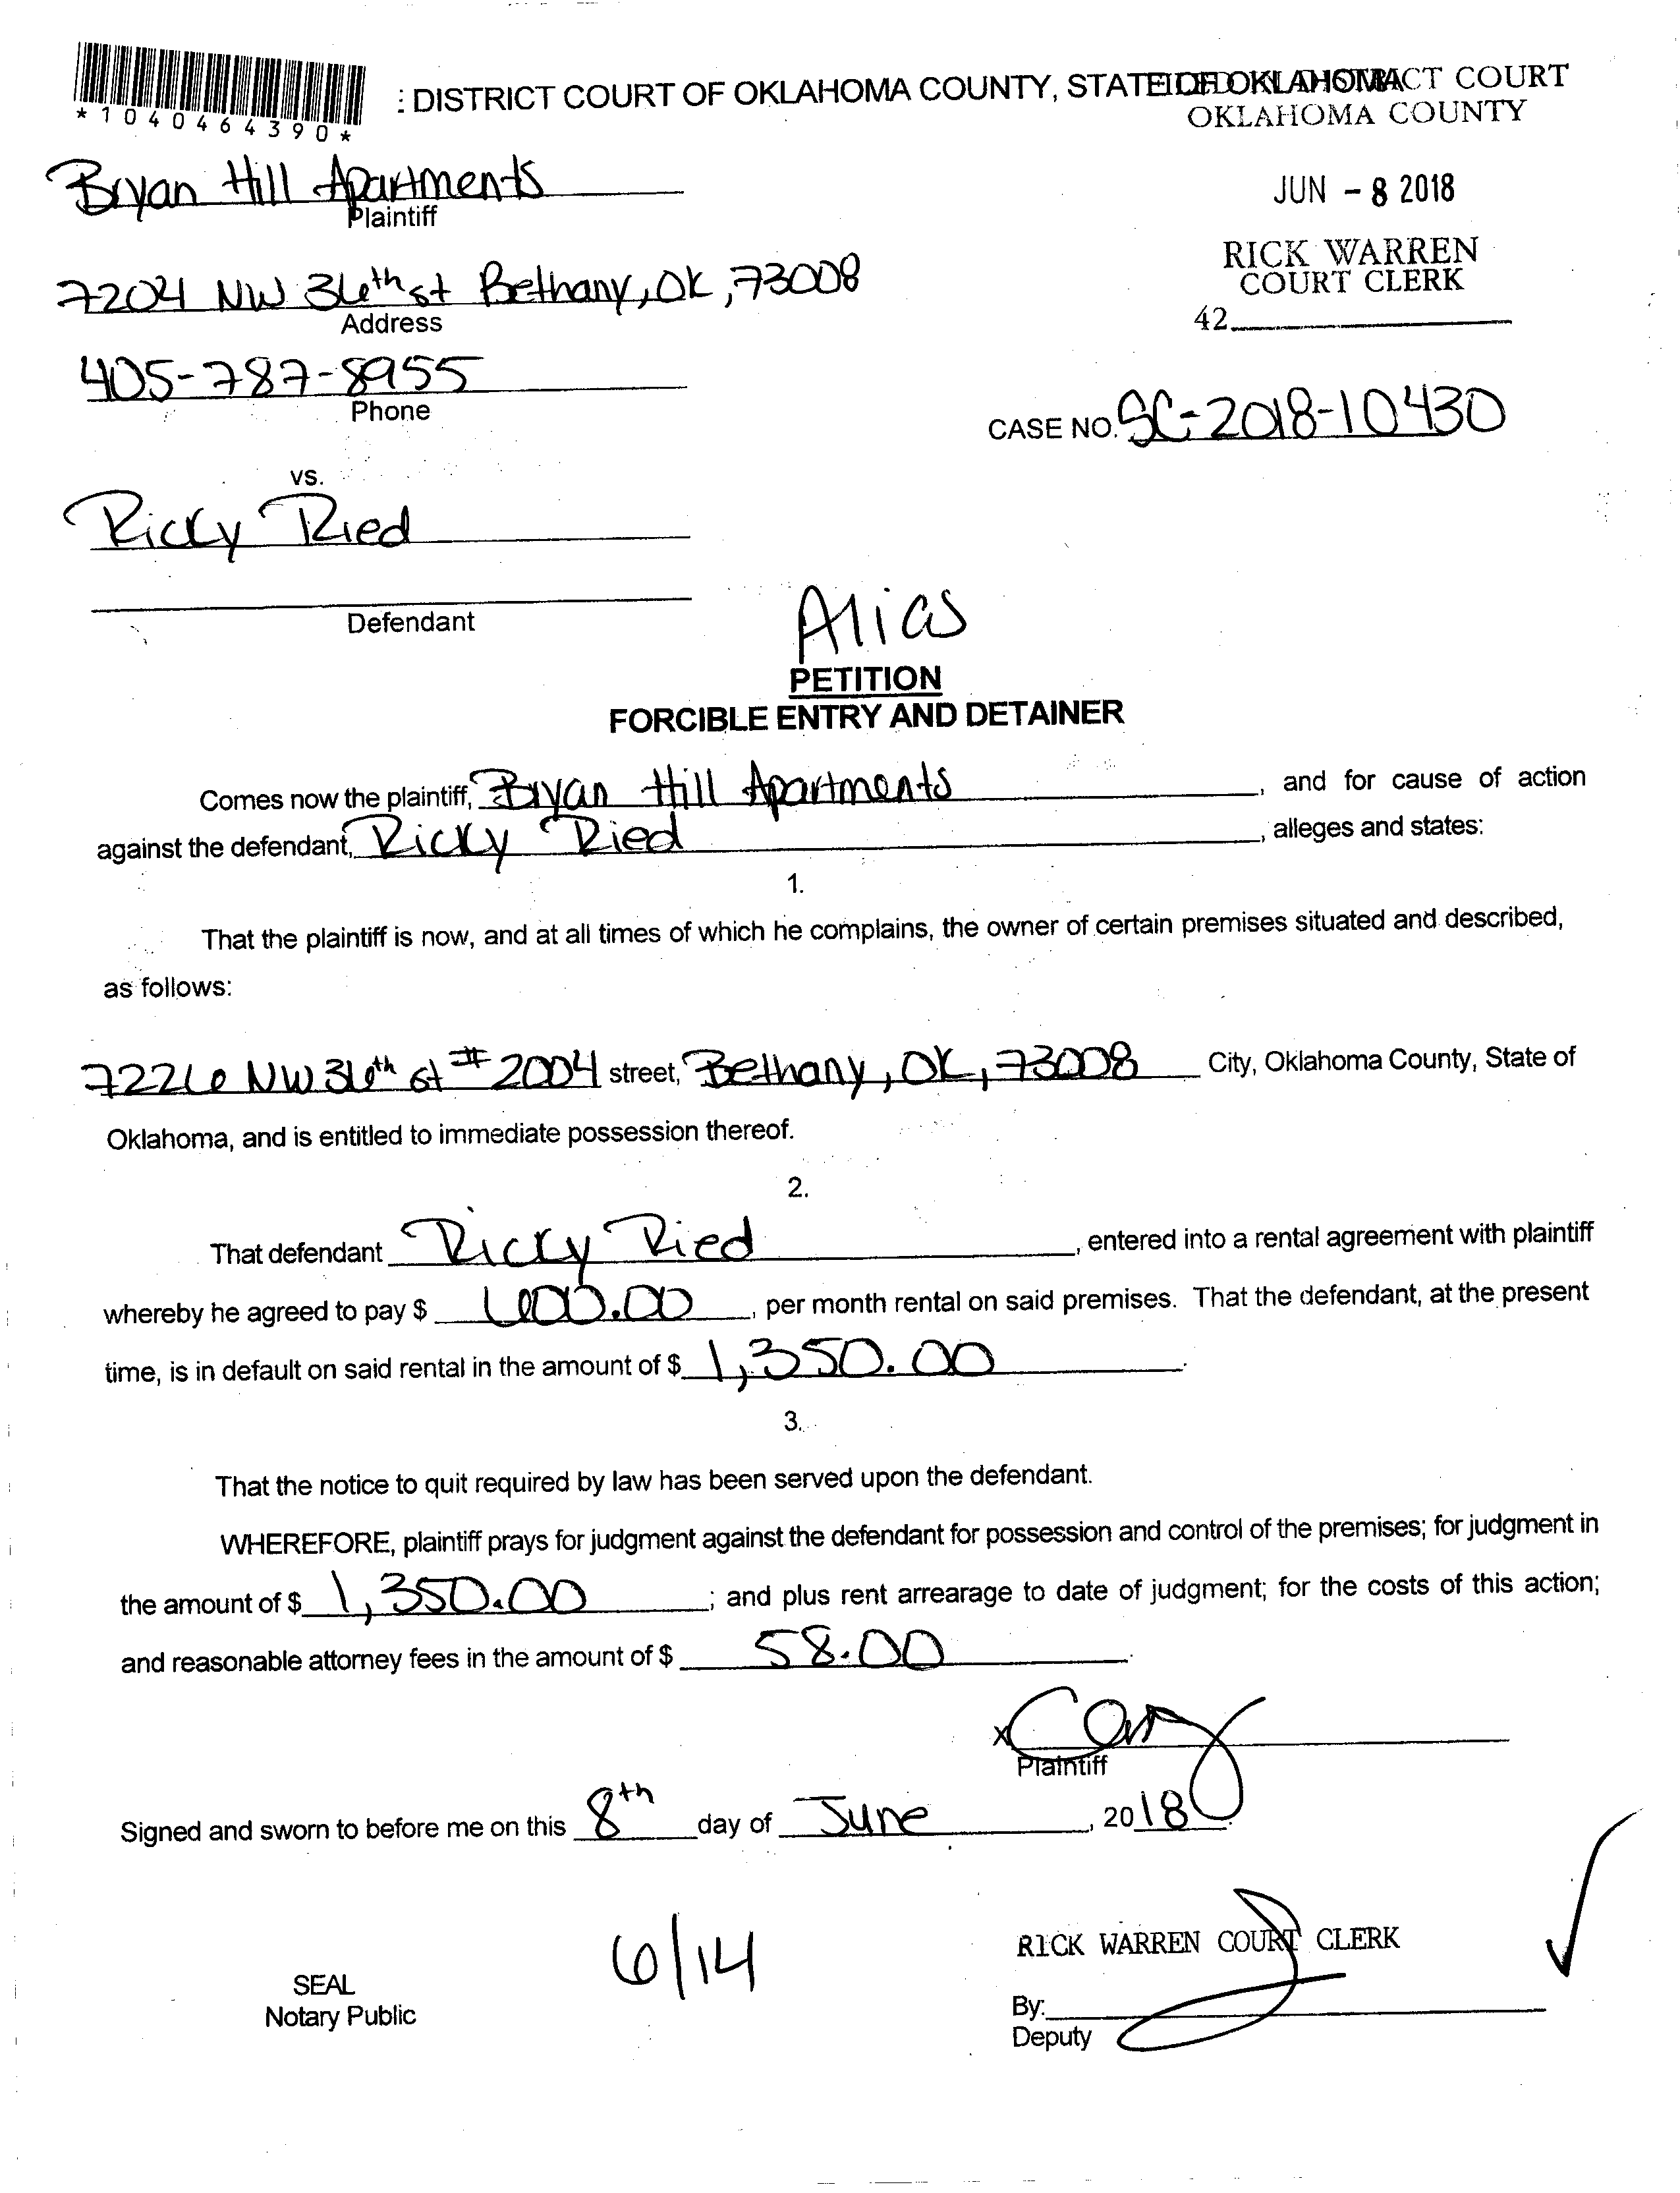 : DISTRICT COURT OF OKLAHOMA COUNTY, STATE OF OKLAHOMA
DISTRICT COURT
OKLAHOMA COUNTY
*1040464390*
Bryan Hill Apartments
Plaintiff
JUN - 8 2018
RICK WARREN
COURT CLERK
42
7204 NW 36th st Bethany, OK, 73008
Address
405-787-8955
Phone
CASE NO. SC-2018-10430
vs.
Ricky Ried
Defendant
Alias
PETITION
FORCIBLE ENTRY AND DETAINER
Comes now the plaintiff, Bryan Hill Apartments, and for cause of action
against the defendant, Ricky Ried, alleges and states:
1.
That the plaintiff is now, and at all times of which he complains, the owner of certain premises situated and described,
as follows:
7226 NW 36th st # 2004 street, Bethany, OK, 73008 City, Oklahoma County, State of
Oklahoma, and is entitled to immediate possession thereof.
2.
That defendant Ricky Ried, entered into a rental agreement with plaintiff
whereby he agreed to pay $ 600.00, per month rental on said premises. That the defendant, at the present
time, is in default on said rental in the amount of $ 1,350.00.
3.
That the notice to quit required by law has been served upon the defendant.
WHEREFORE, plaintiff prays for judgment against the defendant for possession and control of the premises; for judgment in
the amount of $ 1,350.00; and plus rent arrearage to date of judgment; for the costs of this action;
and reasonable attorney fees in the amount of $ 58.00.
X
Plaintiff
Signed and sworn to before me on this 8th day of June, 2018.
6/14
RICK WARREN COURT CLERK
SEAL
Notary Public
By:
Deputy